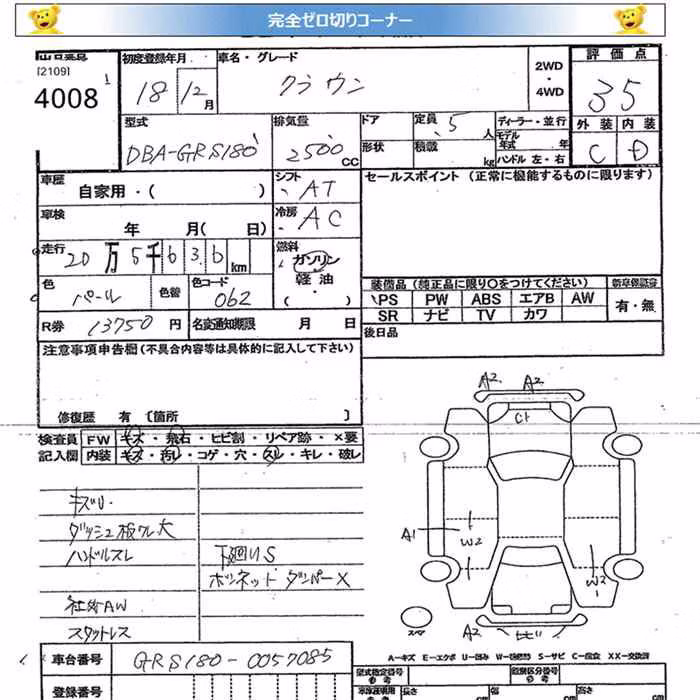 完全ゼロ切りコーナー
[2109]
4008
初度登録年月
車名・グレード
2WD
・
4WD
評価点
18 12月
クラウン
35
型式
排気量
ドア
定員 5人
ディーラー・並行
外装 内装
DBA-GRS180
2500 CC
形状
積載 kg
モデル年式 年
ハンドル 左・右
C D
車歴
自家用・( )
シフト AT
セールスポイント (正常に機能するものに限ります)
車検
年 月( 日)
冷房 AC
走行 20万5千636km
燃料
ガソリン
軽油
・( )
色 パール
色替
色コード 062
装備品 (純正品に限り○をつけてください)
新車保証書
PS PW ABS エアB AW
有・無
SR ナビ TV カワ
R券 13750円
名変通知期限 月 日
後日品
注意事項申告欄 (不具合内容等は具体的に記入して下さい)
修復歴 有 〔箇所 〕
検査員 FW キズ・飛石・ヒビ割・リペア跡・×要
記入欄 内装 キズ・汚レ・コゲ・穴・スレ・キレ・破レ
A2 A2
C1
キズU・
ダッシュ板ワレ大
ハンドルスレ
下廻りS
ボンネットダンパーX
社外AW
スタットレス
A1
W2
W2
1
スマ
A2
A-キズ E-エクボ U-凹み W-補修跡 S-サビ C-腐食 XX-交換済
車台番号 GRS180-0057085
型式指定番号
類別区分番号
登録番号
長さ cm
幅 cm
高さ cm